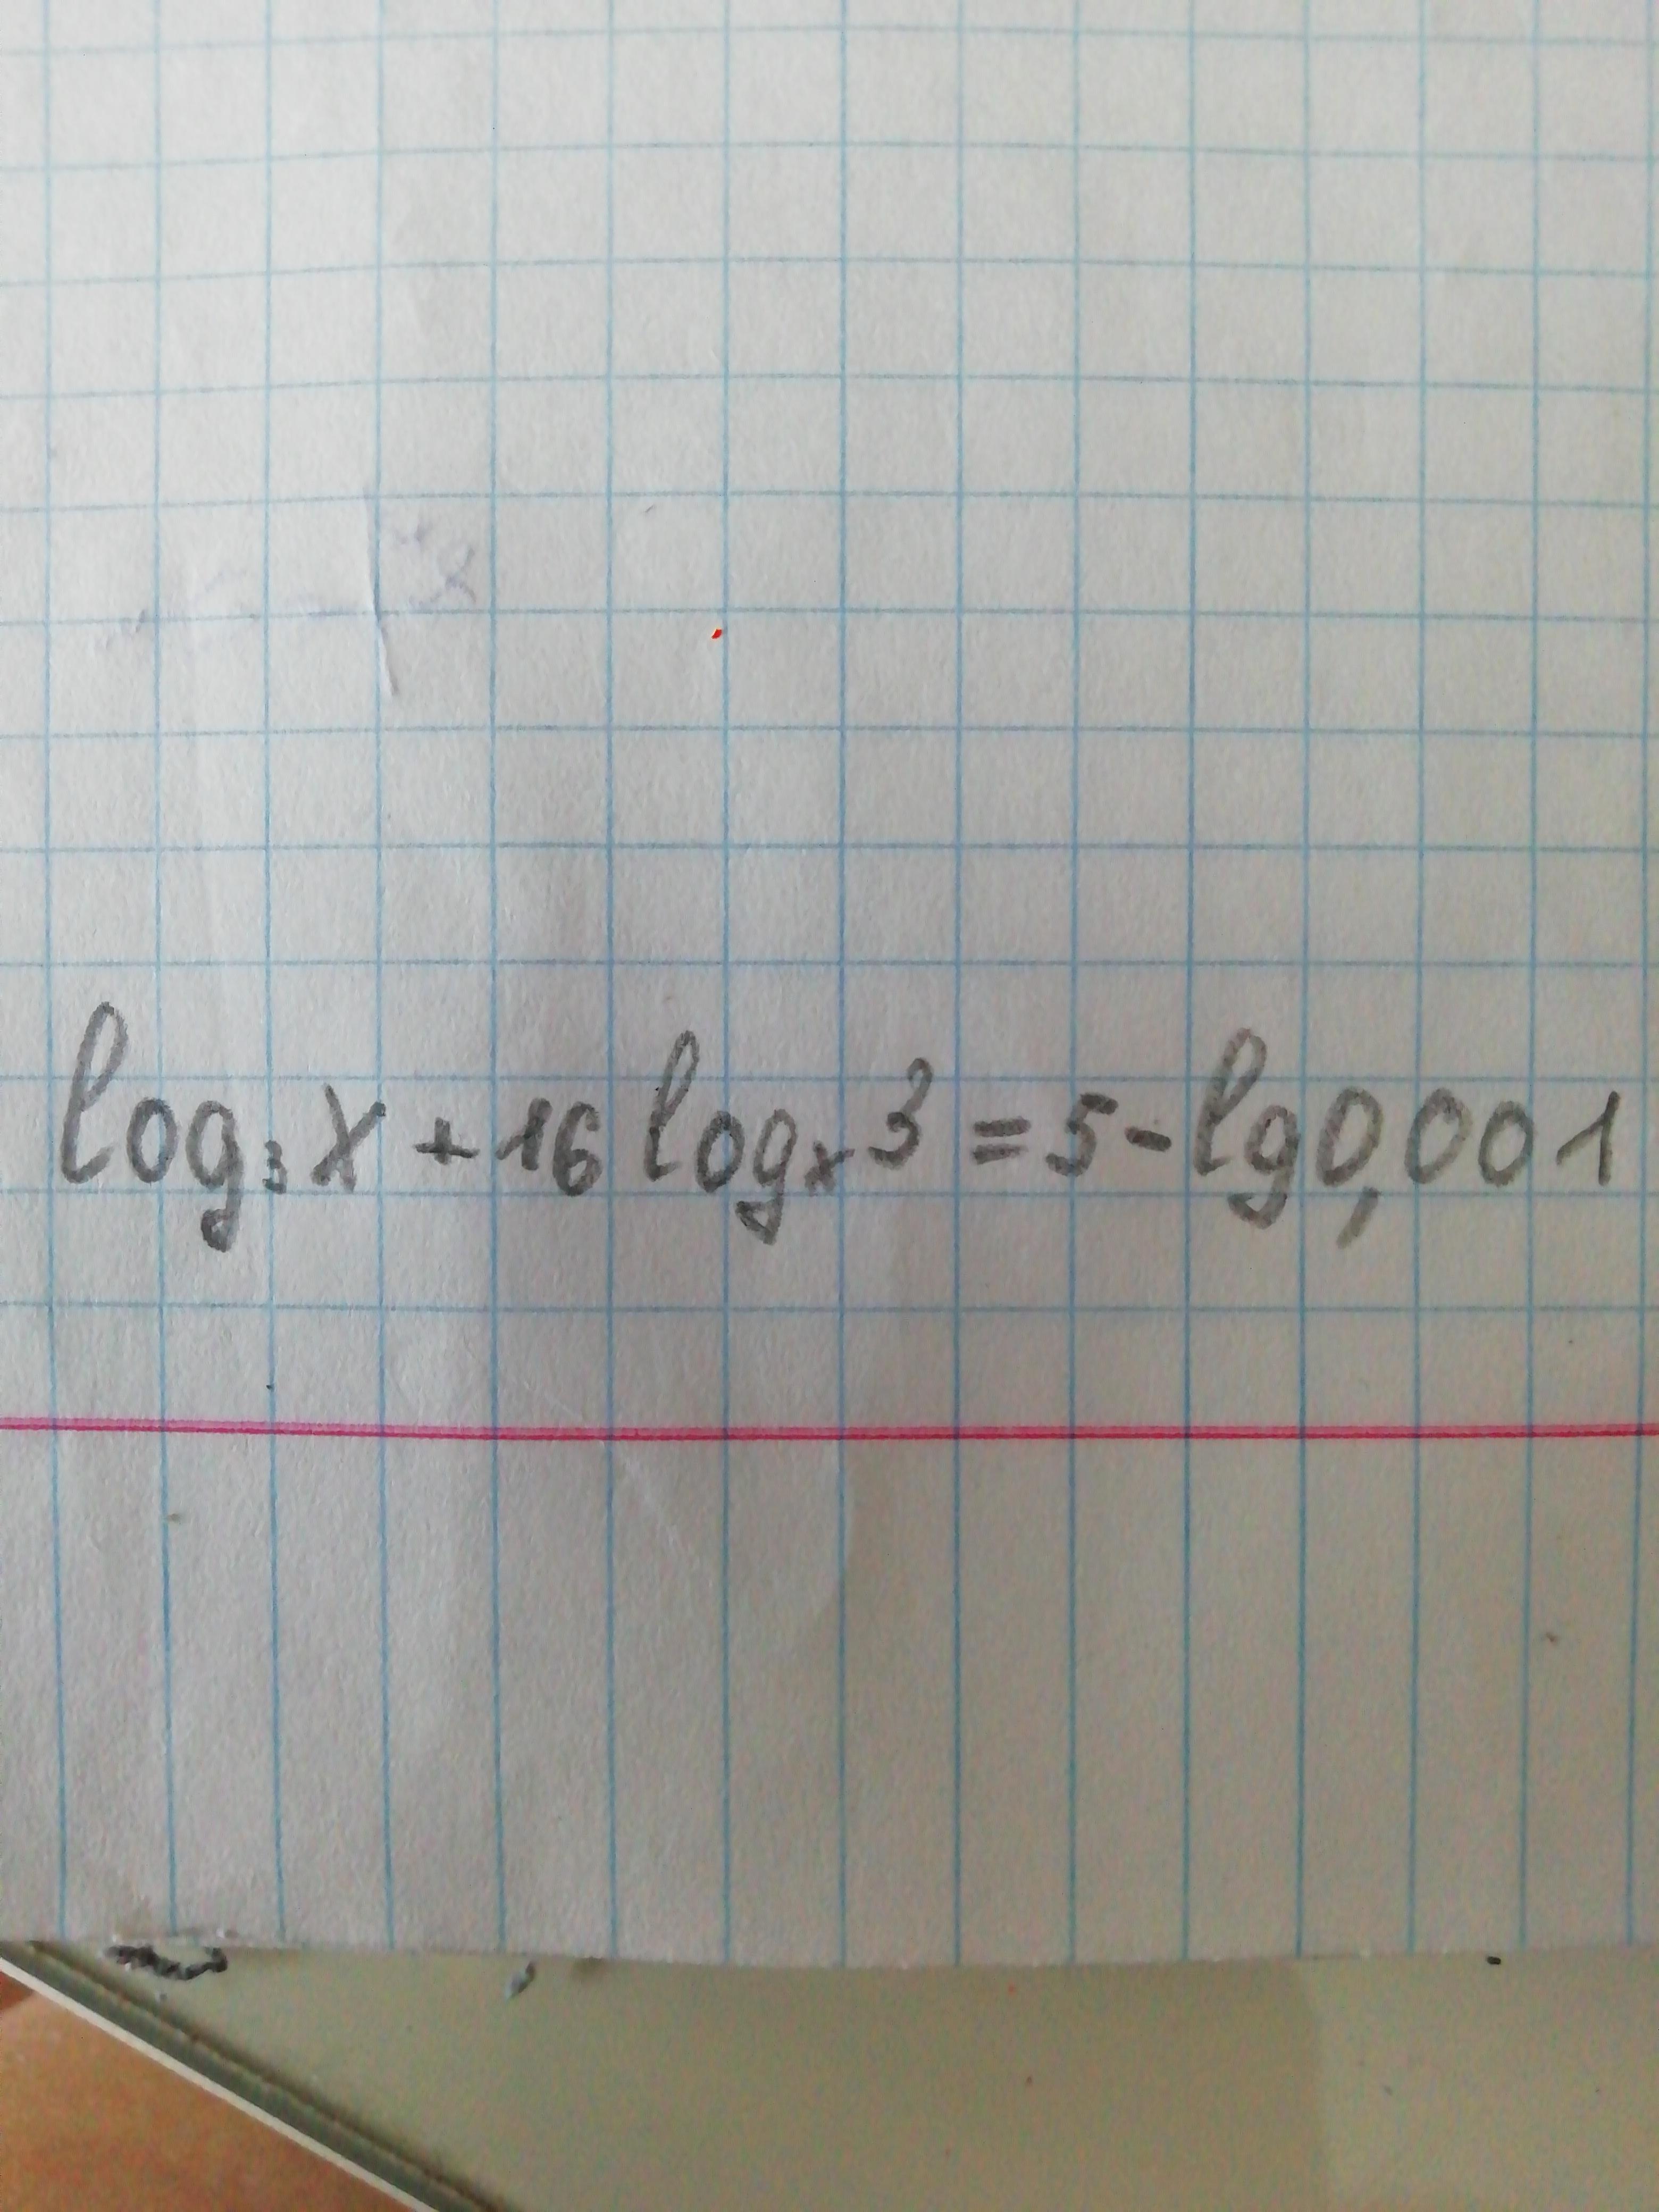 log₃x + 16 logₓ3 = 5 - lg0,001